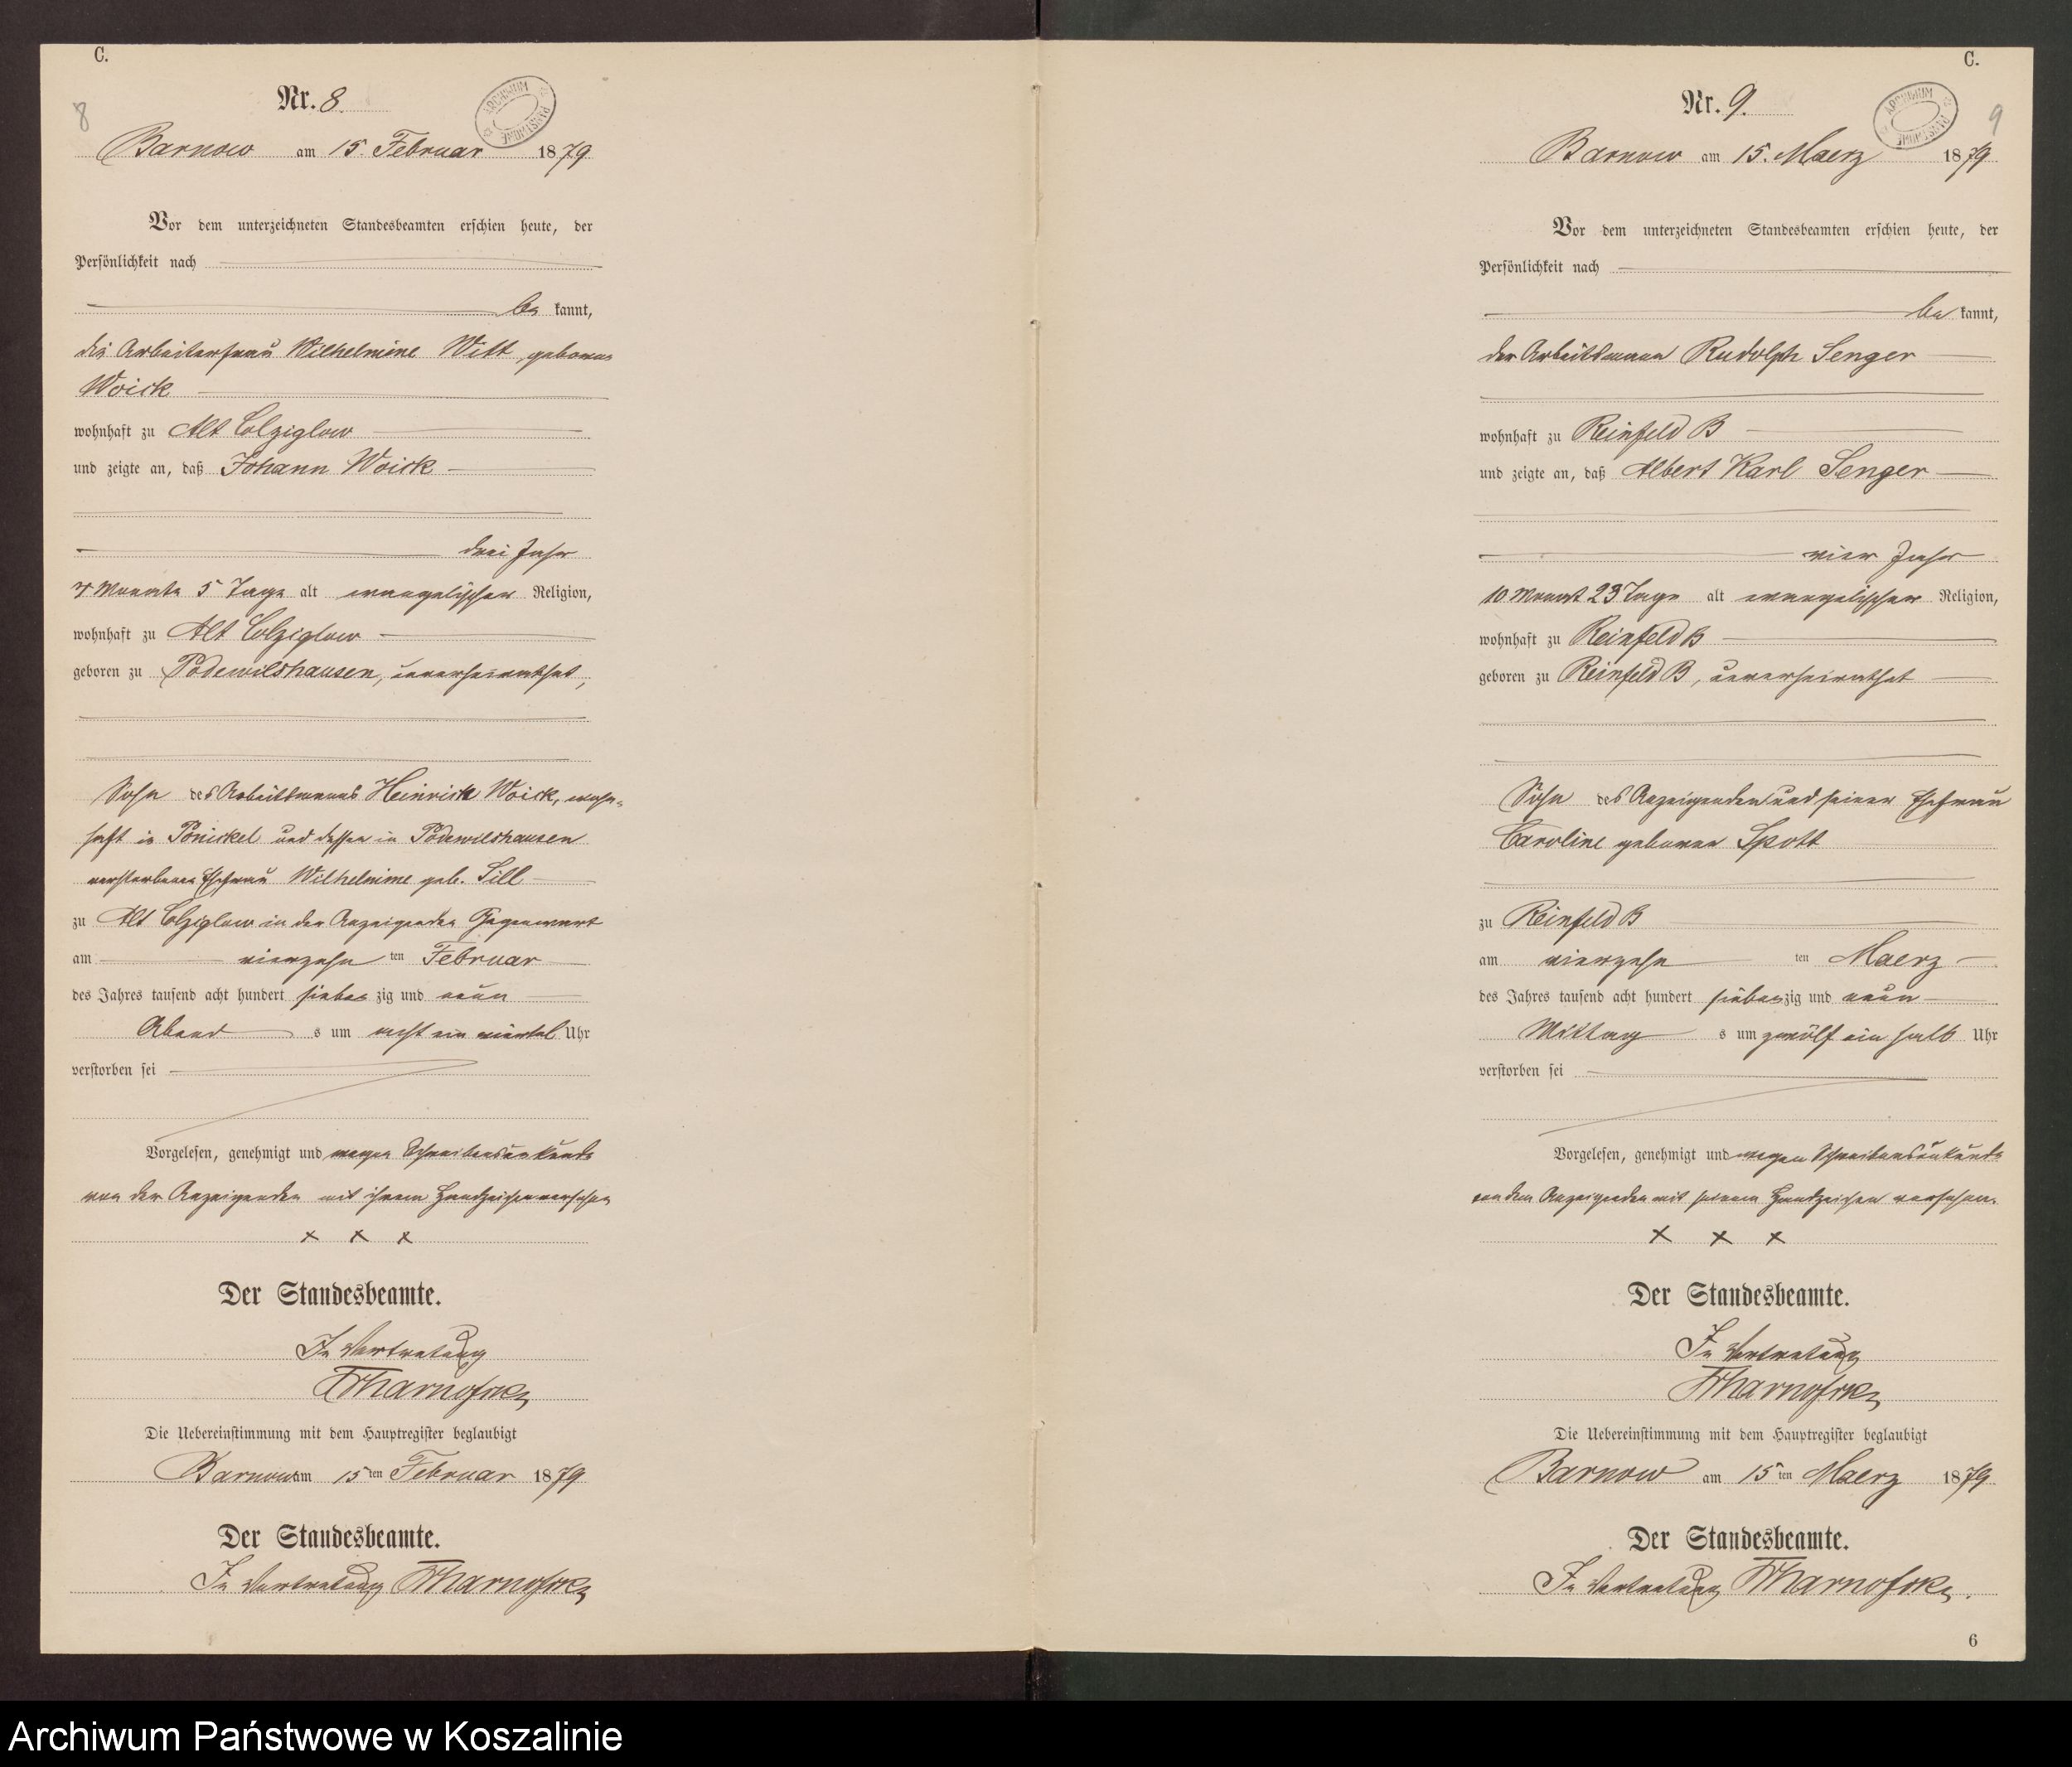 C.
8
Nr. 8.
ARCHIWUM PAŃSTWOWE
Barnow am 15. Februar 1879
Vor dem unterzeichneten Standesbeamten erschien heute, der
Persönlichkeit nach
be kannt,
die Arbeiterfrau Wilhelmine Witt, geborene
Woick
wohnhaft zu Alt Colziglow
und zeigte an, daß Johann Woick
drei Jahr
4 Monate 5 Tage alt evangelischer Religion,
wohnhaft zu Alt Colziglow
geboren zu Podewilshausen, unverheirathet,
Sohn des Arbeitsmanns Heinrich Woick, wohn-
haft in Ponickel und dessen in Podewilshausen
verstorbenen Ehefrau Wilhelmine geb. Sill
zu Alt Colziglow in der Anzeigenden Gegenwart
am vierzehn ten Februar
des Jahres tausend acht hundert sieben zig und neun
Abend s um acht ein viertel Uhr
verstorben sei
Vorgelesen, genehmigt und wegen Schreibensunkunde
von der Anzeigenden mit ihrem Handzeichen versehen
x x x
Der Standesbeamte.
In Vertretung
Die Uebereinstimmung mit dem Hauptregister beglaubigt
Barnow am 15ten Februar 1879
Der Standesbeamte.
In Vertretung
C.
9
Nr. 9.
ARCHIWUM PAŃSTWOWE
Barnow am 15. Maerz 1879
Vor dem unterzeichneten Standesbeamten erschien heute, der
Persönlichkeit nach
be kannt,
der Arbeitsmann Rudolph Senger
wohnhaft zu Reinfeld B
und zeigte an, daß Albert Karl Senger
vier Jahr
10 Monat 23 Tage alt evangelischer Religion,
wohnhaft zu Reinfeld B
geboren zu Reinfeld B, unverheirathet
Sohn des Anzeigenden und seiner Ehefrau
Caroline geborene Spott
zu Reinfeld B
am vierzehn ten Maerz
des Jahres tausend acht hundert sieben zig und neun
Mittag s um zwölf ein halb Uhr
verstorben sei
Vorgelesen, genehmigt und wegen Schreibensunkunde
von dem Anzeigenden mit seinem Handzeichen versehen.
x x x
Der Standesbeamte.
In Vertretung
Die Uebereinstimmung mit dem Hauptregister beglaubigt
Barnow am 15ten Maerz 1879
Der Standesbeamte.
In Vertretung
6
Archiwum Państwowe w Koszalinie